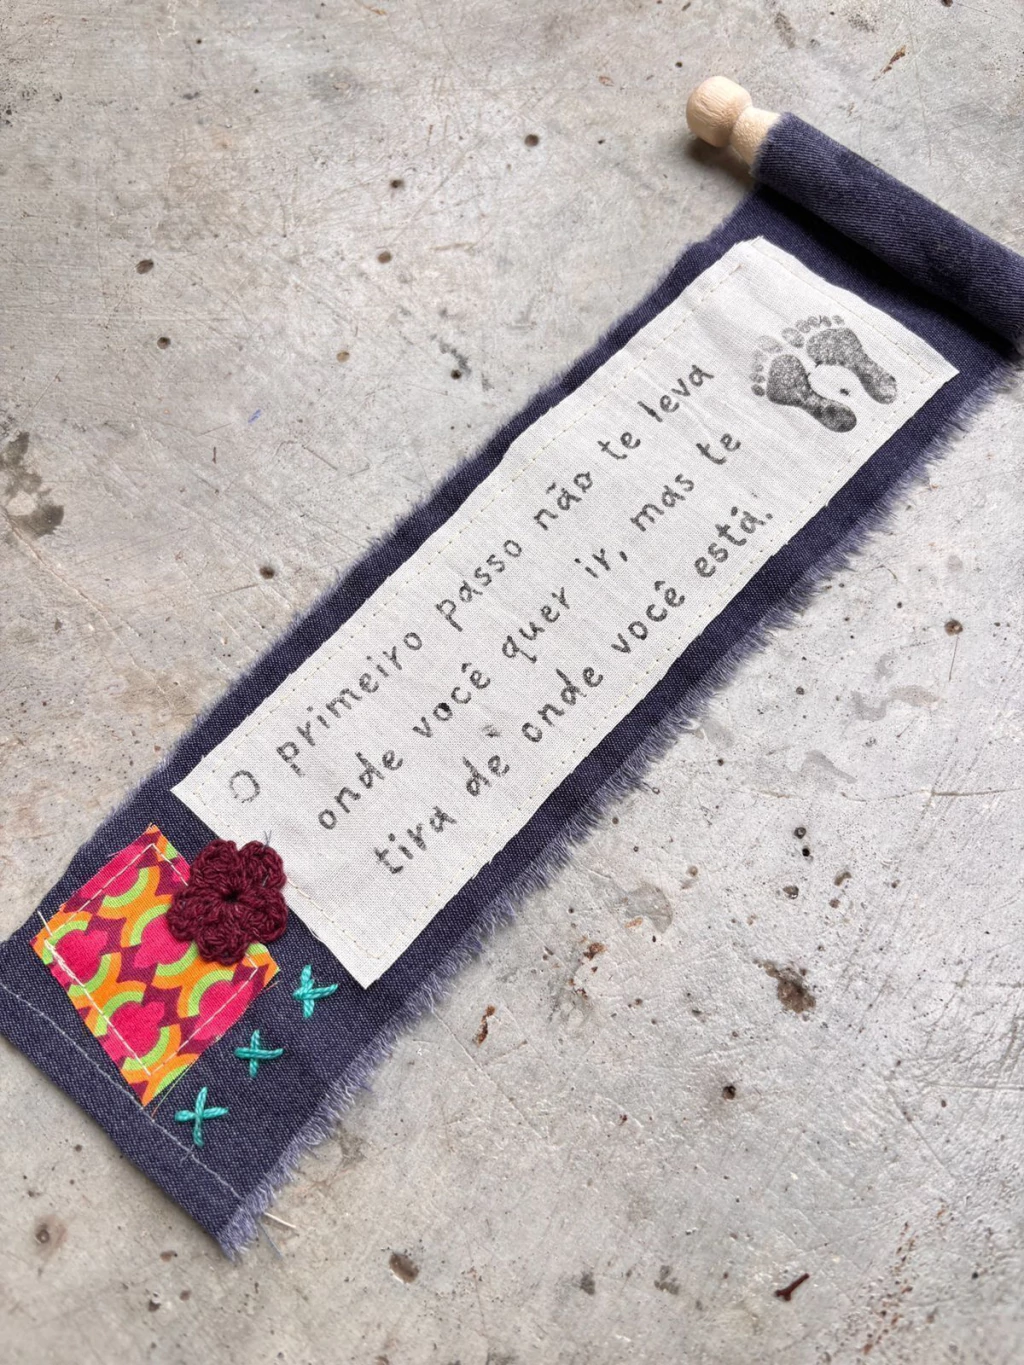 O primeiro passo não te leva
onde você quer ir, mas te
tira de onde você está.